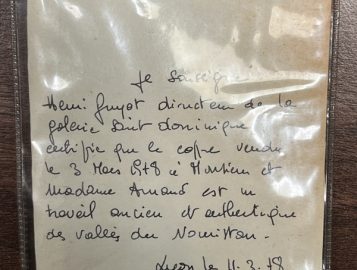 Je soussigné
Henri Guyot directeur de la
galerie Saint Dominique
certifie que le coffre vendu
le 3 Mars 1978 à Monsieur et
Madame Arnaud est un
travail ancien et authentique
des vallées du
Lyon le 11.3.78